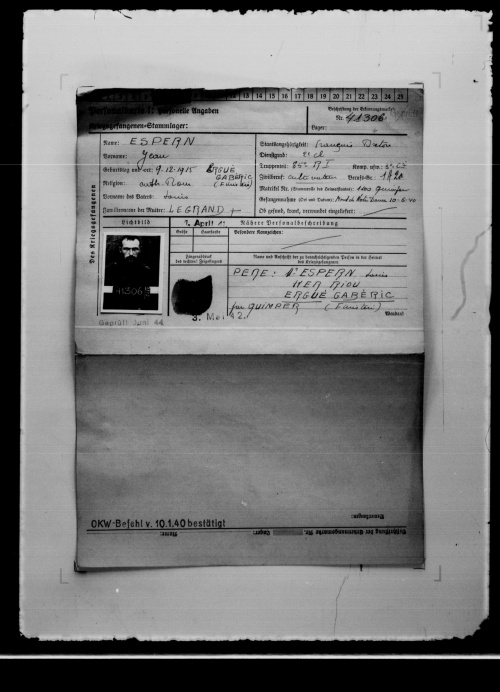 13 14 15 16 17 18 19 20 21 22 23 24 25
Personalkarte I: Personelle Angaben
Kriegsgefangenen-Stammlager:
Beschriftung der Erkennungsmarke
Nr. 41306
Lager:
Des Kriegsgefangenen
Name: ESPERN
Vorname: Jean
Geburtstag und -ort: 9.12.1915 ERGUÉ GABÉRIC (Finistère)
Religion: cath. Rom
Vorname des Vaters: Louis
Familienname der Mutter: LEGRAND +
Staatsangehörigkeit: français
Dienstgrad: 2e cl
Truppenteil: Komp. usw.:
Zivilberuf: Berufs-Gr.:
Matrikel Nr. (Stammrolle des Heimatstaates): Quimper
Gefangennahme (Ort und Datum): 10.6.40
Ob gesund, krank, verwundet eingeliefert:
Lichtbild
41306
Geprüft Juni 44
2. April
Nähere Personalbeschreibung
Größe
Haarfarbe
Besondere Kennzeichen:
Fingerabdruck
des rechten! Zeigefingers
3. Mai 42.
Name und Anschrift der zu benachrichtigenden Person in der Heimat
des Kriegsgefangenen
PERE: Mr ESPERN Louis
MER RIOU
ERGUÉ GABÉRIC
par QUIMPER (Finistère)
Wenden!
Bemerkungen:
OKW-Befehl v. 10.1.40 bestätigt
Beschriftung der Erkennungsmarke Nr. Lager: Name: